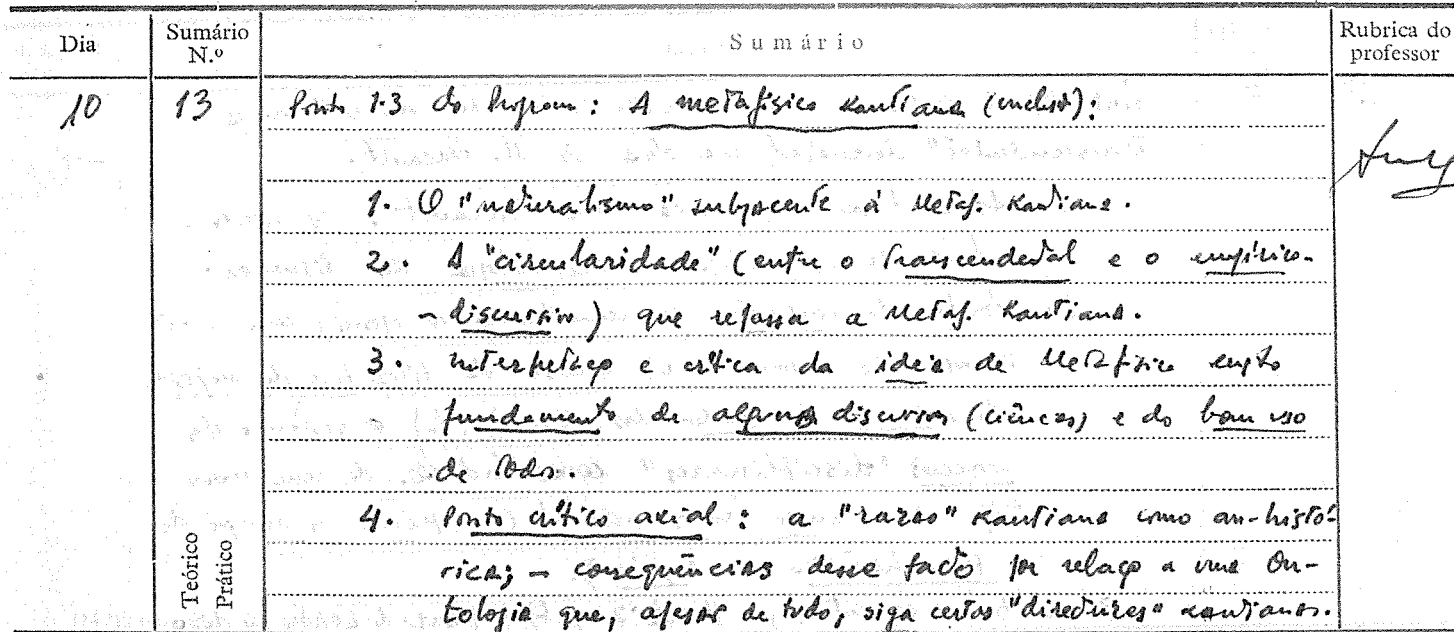 Dia
Sumário N.º
Sumário
Rubrica do professor
10
13
Ponto 1.3 do Programa: A metafísica kantiana (conclusão):
1. O "naturalismo" subjacente à Metaf. Kantiana.
2. A "circularidade" (entre o transcendental e o empírico-
-discursivo) que repassa a Metaf. Kantiana.
3. Interpretação e crítica da ideia de Metafísica enqto
fundamento de alguns discursos (ciências) e do bom uso
de todos.
4. Ponto crítico axial: a "razão" kantiana como an-histó-
rica; – consequências desse facto por relação a uma On-
tologia que, apesar de tudo, siga certas "directrizes" kantianas.
Teórico
Prático